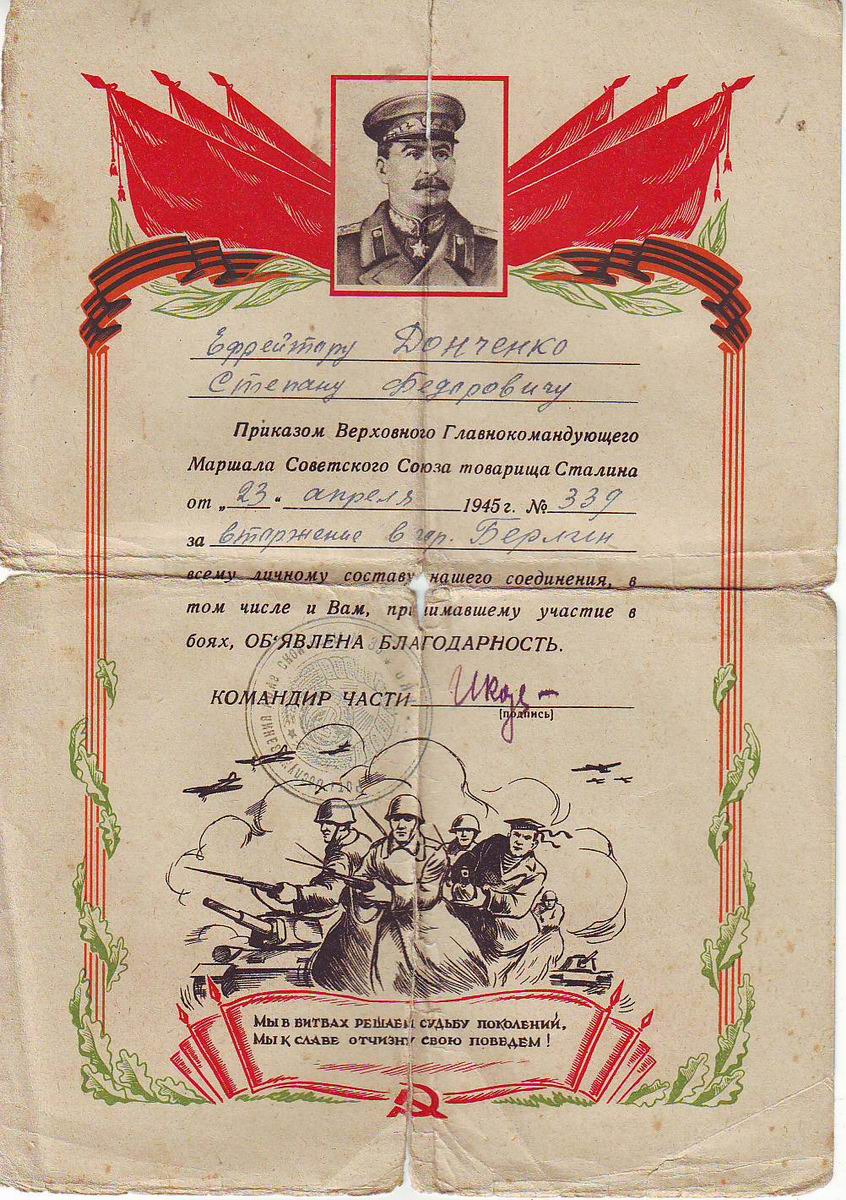 Ефрейтору Донченко
Степану Федоровичу
Приказом Верховного Главнокомандующего
Маршала Советского Союза товарища Сталина
от „23“ апреля 1945 г. № 339
за вторжение в гор. Берлин
всему личному составу нашего соединения, в
том числе и Вам, принимавшему участие в
боях, ОБ‘ЯВЛЕНА БЛАГОДАРНОСТЬ.
КОМАНДИР ЧАСТИ
[подпись]
Мы в битвах решаем судьбу поколений,
Мы к славе отчизну свою поведем!